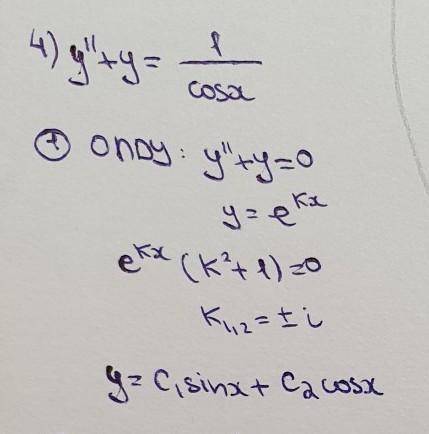 4) y''+y= 1/cosx
① ОЛДУ: y''+y=0
y= e^{kx}
e^{kx} (k²+1)=0
k₁,₂= ± i
y= C₁sinx+ C₂cosx